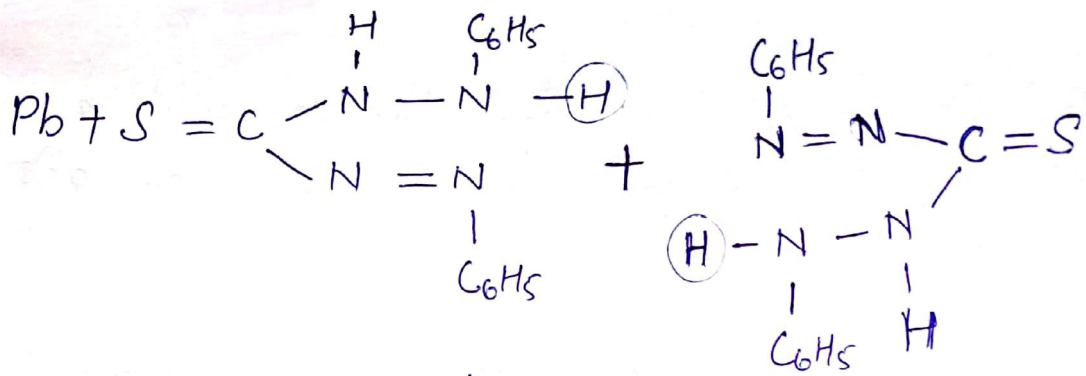 H C6H5
Pb + S = C - N - N - H
N = N
C6H5
+
C6H5
N = N - C = S
H - N - N
C6H5 H